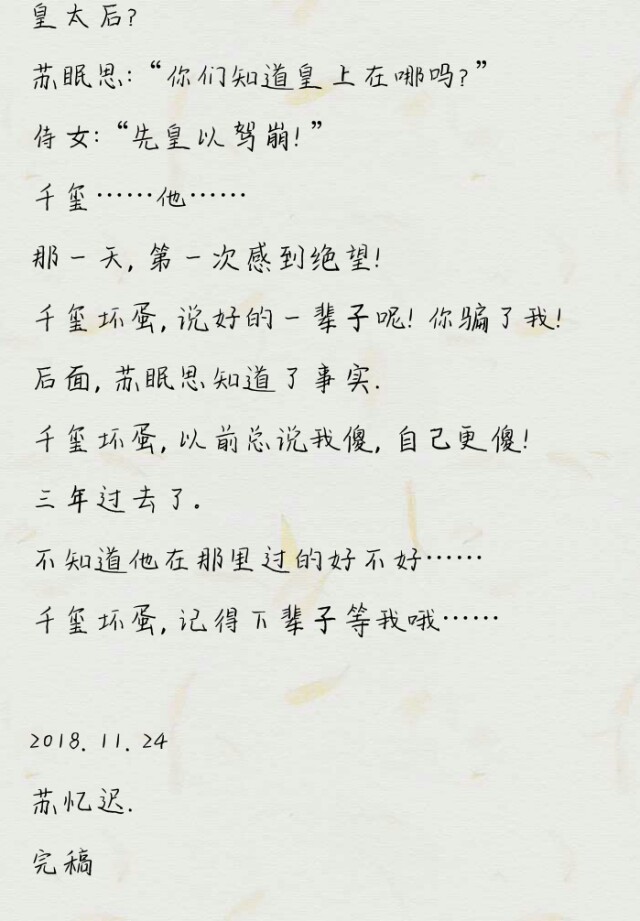 皇太后?
苏眠思:“你们知道皇上在哪吗?”
侍女:“先皇以驾崩!”
千玺……他……
那一天,第一次感到绝望!
千玺坏蛋,说好的一辈子呢!你骗了我!
后面,苏眠思知道了事实.
千玺坏蛋,以前总说我傻,自己更傻!
三年过去了。
不知道他在那里过的好不好……
千玺坏蛋,记得下辈子等我哦……
2018.11.24
苏忆迟.
完稿